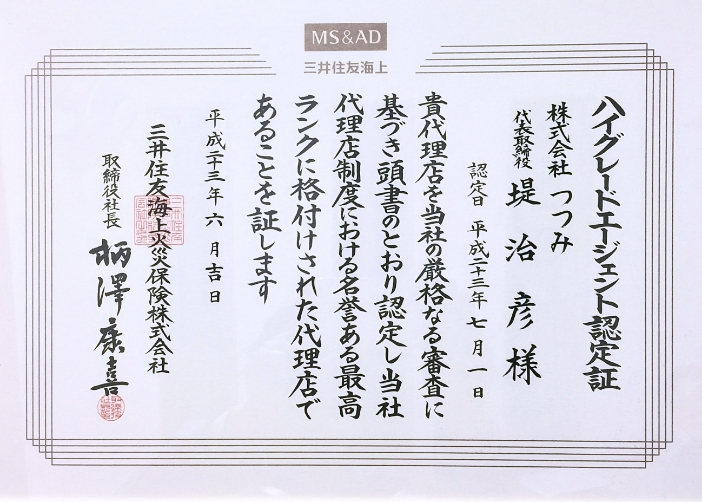 MS&AD
三井住友海上
ハイグレードエージェント認定証
株式会社 つつみ
代表取締役 堤 治彦 様
認定日 平成二十三年七月一日
貴代理店を当社の厳格なる審査に
基づき頭書のとおり認定し当社
代理店制度における名誉ある最高
ランクに格付けされた代理店で
あることを証します
平成二十三年六月吉日
三井住友海上火災保険株式会社
取締役社長 柄澤康喜